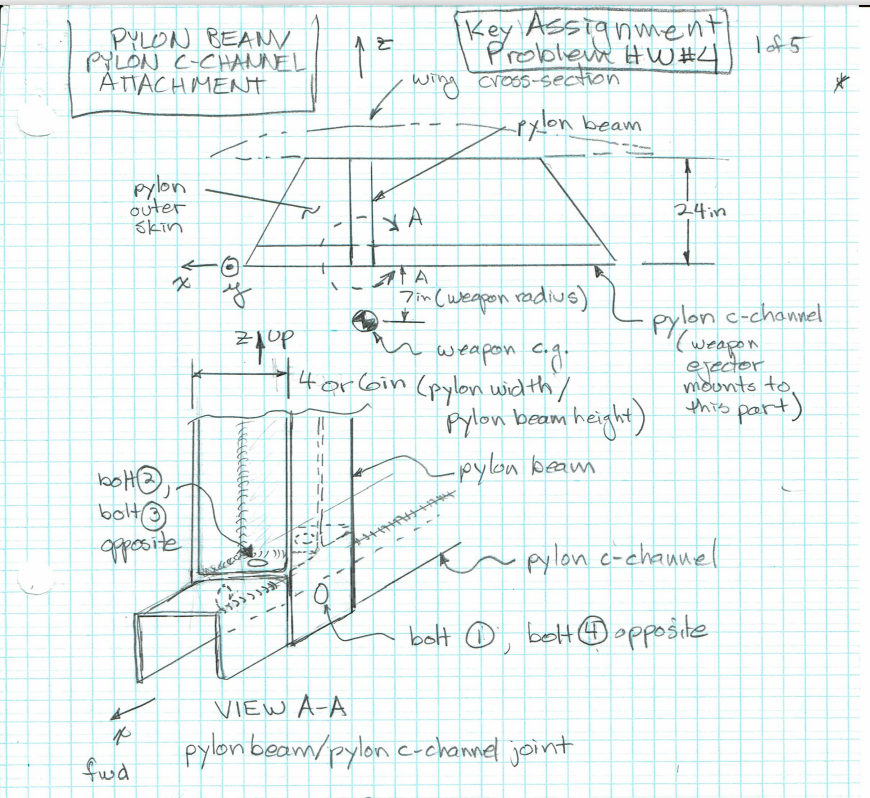 PYLON BEAM/
PYLON C-CHANNEL
ATTACHMENT
z
Key Assignment
Problem HW#4
1 of 5
*
wing cross-section
pylon beam
pylon
outer
skin
A
24in
x
y
A
7in (weapon radius)
weapon c.g.
pylon c-channel
(weapon
ejector
mounts to
this part)
z up
4 or 6in (pylon width/
pylon beam height)
bolt 2,
bolt 3
opposite
pylon beam
pylon c-channel
bolt 1, bolt 4 opposite
VIEW A-A
pylon beam/pylon c-channel joint
x
fwd